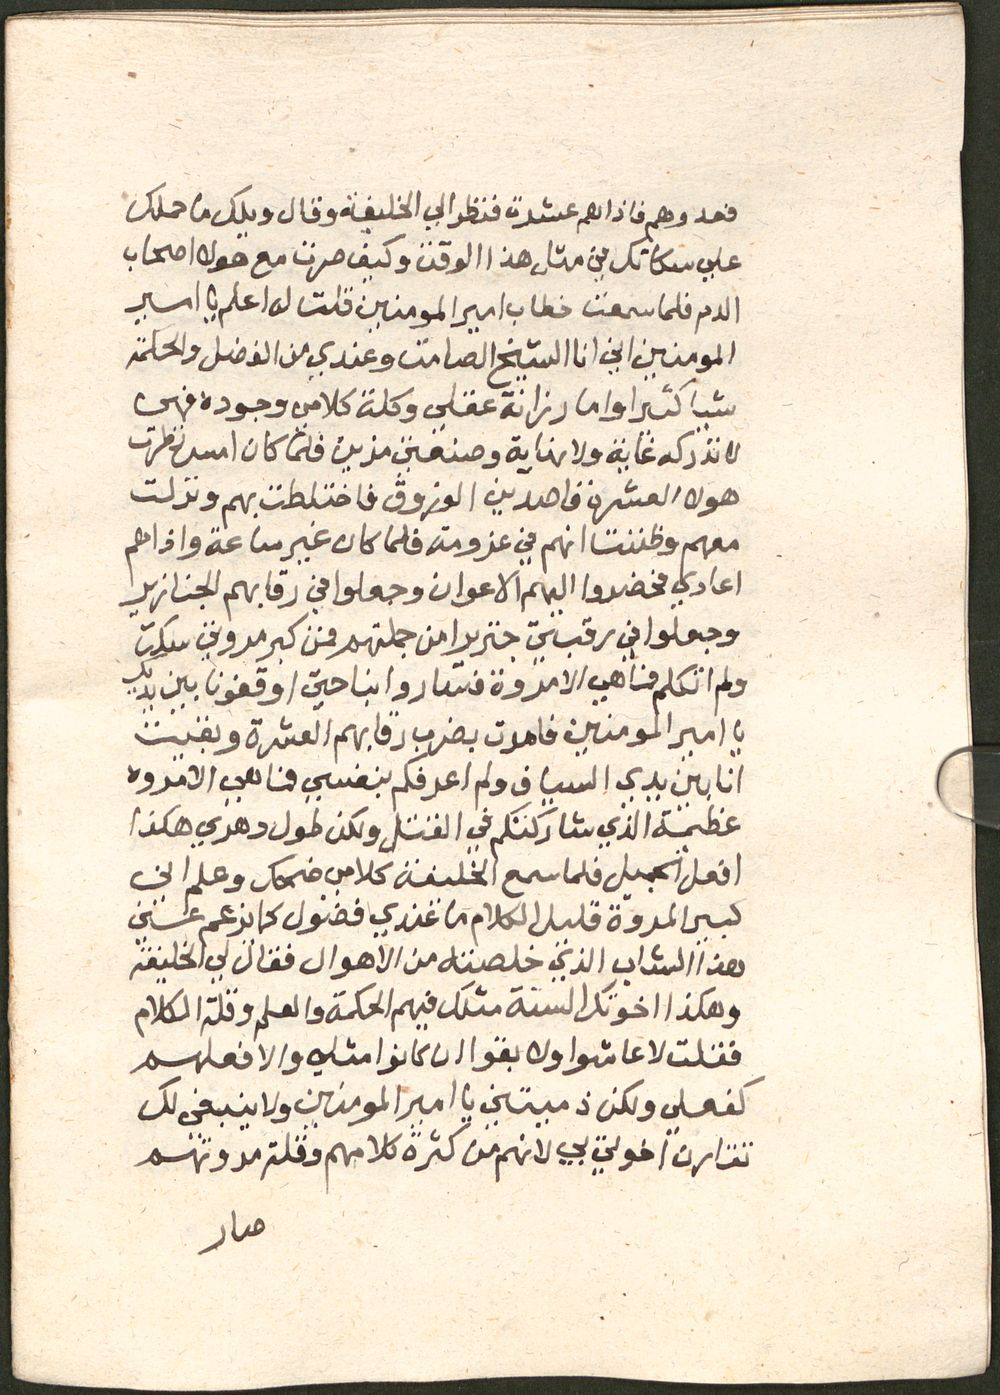 فعدوهم فاذا هم عشرة فنظر الي الخليفة وقال ويلك ما حملك
علي سكاتك في مثل هذا الوقت وكيف صرت مع هولا اصحاب
الدم فلما سمعت خطاب امير المومنين قلت له اعلم يا امير
المومنين اني انا الشيخ الصامت وعندي من الفضل والحكمة
شيا كثيرا واما رزانة عقلي وقلة كلامي وجوده فهمي
لا تدركه غاية ولا نهاية وصنعتي مزين فلما كان امس نظرت
هولا العشرة قاصدين الزورق فاختلطت بهم ونزلت
معهم وظننت انهم في عزومة فلما كان غير ساعة واذا هم
اعادي فحضروا اليهم الاعوان وجعلوا في رقابهم الجنازير
وجعلوا في رقبتي جنزيرا من جملتهم فمن كبر مروتي سكت
ولم اتكلم فما هي الا مروة فساروا بنا حتي اوقفونا بين يديك
يا امير المومنين فامرت بضرب رقابهم العشرة وبقيت
انا بين يدي السياف ولم اعرفكم بنفسي فما هي الا مروه
عظيمة الذي شاركتكم في القتل ولكن طول دهري هكذا
افعل الجميل فلما سمع الخليفة كلامي ضحك وعلم اني
كبير المروة قليل الكلام ما عندي فضول كما زعم عني
هذا الشاب الذي خلصته من الاهوال فقال لي الخليفة
وهكذا اخوتك الستة مثلك فيهم الحكمة والعلم وقلة الكلام
فقلت لا عاشوا ولا بقوا ان كانوا مثلي والا فعلهم
كفعلي ولكن ذميتني يا امير المومنين ولا ينبغي لك
تقارن اخوتي بي لانهم من كثرة كلامهم وقلة مروتهم
صار